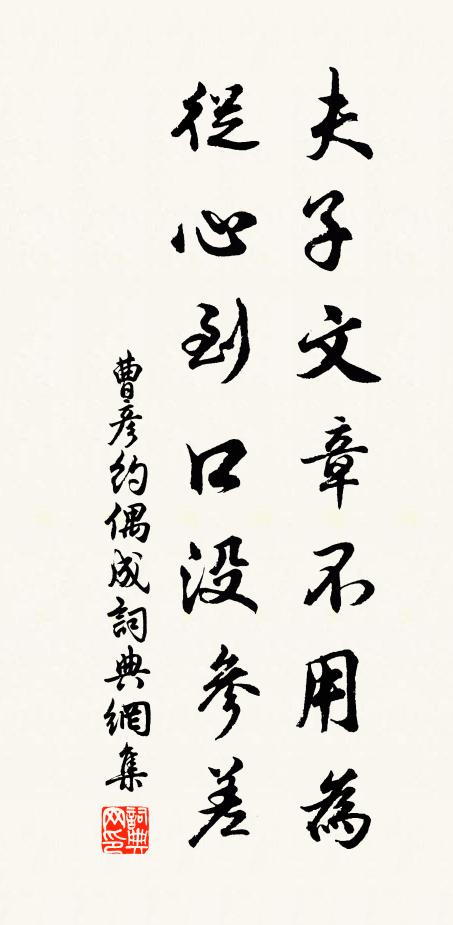 夫子文章不用為
從心到口沒參差
曹彥約偶成詞典網集
詞典网印